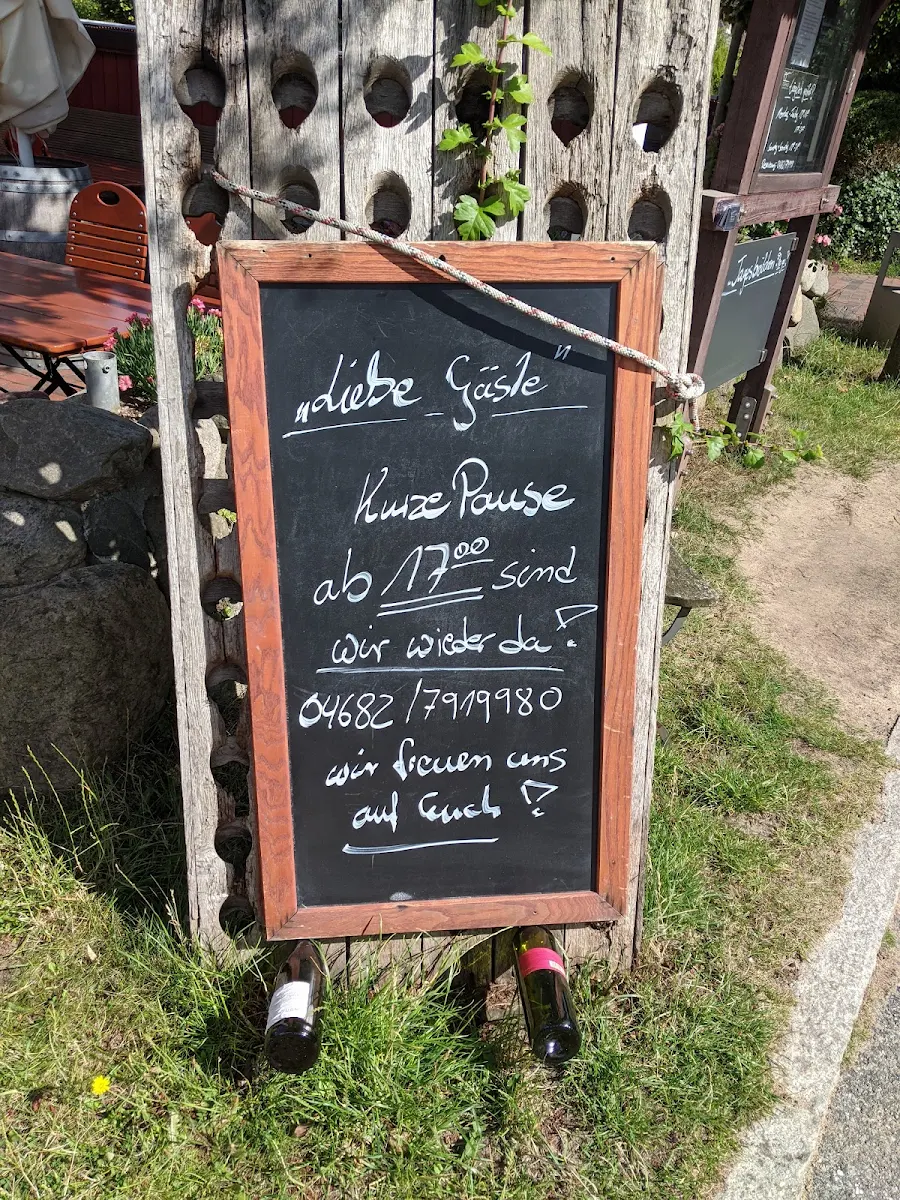 „Liebe Gäste"
Kurze Pause
ab 17⁰⁰ sind
wir wieder da!
04682/7919980
wir freuen uns
auf Euch!